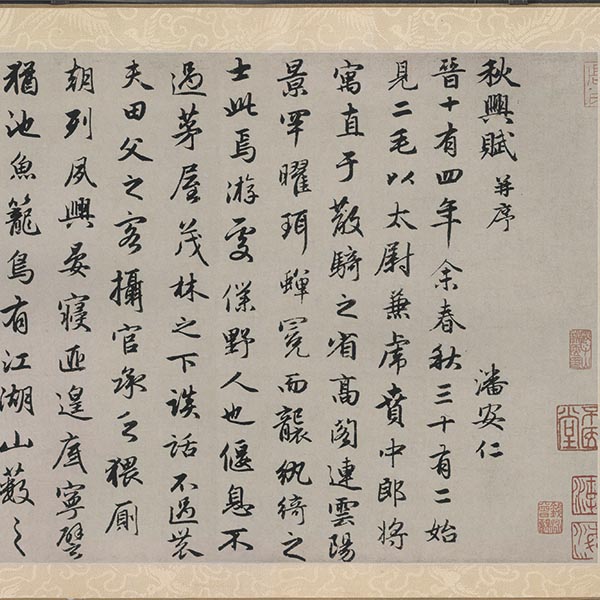 秋興賦 并序 潘安仁
晉十有四年余春秋三十有二始
見二毛以太尉兼虎賁中郎將
寓直于散騎之省高閣連雲陽
景罕曜珥蟬冕而襲紈綺之
士此焉游處僕野人也偃息不
過茅屋茂林之下談話不過農
夫田父之客攝官承乏猥厠
朝列夙興晏寢匪遑底寧譬
猶池魚籠鳥有江湖山藪之